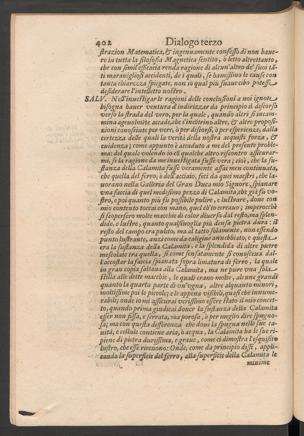 402 Dialogo terzo
strazion Matematica, & ingenuamente confesso di non haue-
re in tutta la filosofia Magnetica sentito, ò letto altrettanto,
che con simil efficacia renda ragione di alcun'altro de' suoi tã-
ti marauigliosi accidenti, de i quali, se hauessimo le cause con
tanta chiarezza spiegate, non sò qual più suaue cibo potesse
desiderare l'intelletto nostro.
SALV. Nell'inuestigar le ragioni delle conclusioni a noi ignote,
bisogna hauer ventura d'indirizzar da principio il discorso
verso la strada del vero, per la quale, quando altri si incam-
mina ageuolmente accade, che s'incõtrino altre, & altre proposizi-
oni conosciute per vere, ò per discorsi, ò per esperienze, dalla
certezza delle quali la verità della nostra acquisti forza, &
euidenza; come appunto è accaduto a me del presente proble-
ma: del quale volendo io con qualche altro riscontro assicurar-
mi, se la ragione da me inuestigata fusse vera; cioè, che la su-
stanza della Calamita fusse veramente assai men continuata,
che quella del ferro, ò dell'acciaio, feci da quei maestri, che la-
uorano nella Galleria del Gran Duca mio Signore, spianare
vna faccia di quel medesimo pezzo di Calamita, che già fù vo-
stro, e poi quanto più fù possibile pulire, e lustrare, doue con
mio contento toccai con mano, quel ch'io cercauo; imperocchè
si scopersero molte macchie di color diuerso dal resto, ma splen-
dide, e lustre, quanto qualsiuoglia più densa pietra dura: il
resto del campo era pulito, ma al tatto solamente, non essendo
punto lustrante, anzi come da caligine annebbiato; e questa
era la sustanza della Calamita, e la splendida di altre pietre
mescolate tra quella, sì come sensatamente si conosceua dal-
l'accostar la faccia spianata sopra limatura di ferro, la quale
in gran copia saltaua alla Calamita, ma nè pure vna sola
stilla alle dette macchie, le quali erano molte, alcune grandi
quanto la quarta parte di vn'vgna, altre alquanto minori,
moltissime poi le piccole; e le appena visibili, quasi che innume-
rabili; onde io mi assicurai verissimo essere stato il mio concet-
to, quando prima giudicai douer la sustanza della Calamita
esser non fissa, e serrata, ma porosa, ò per meglio dire spugno-
sa; ma con questa differenza che doue la spugna nelle sue ca-
uità, e cellule contiene aria, ò acqua, la Calamita ha le sue ri-
piene di pietra durissima, e graue, come ci dimostra l'esquisito
lustro, che esse riceuono: Onde, come da principio dissi, appli-
cando la superficie del ferro, alla superficie della Calamita le
minime